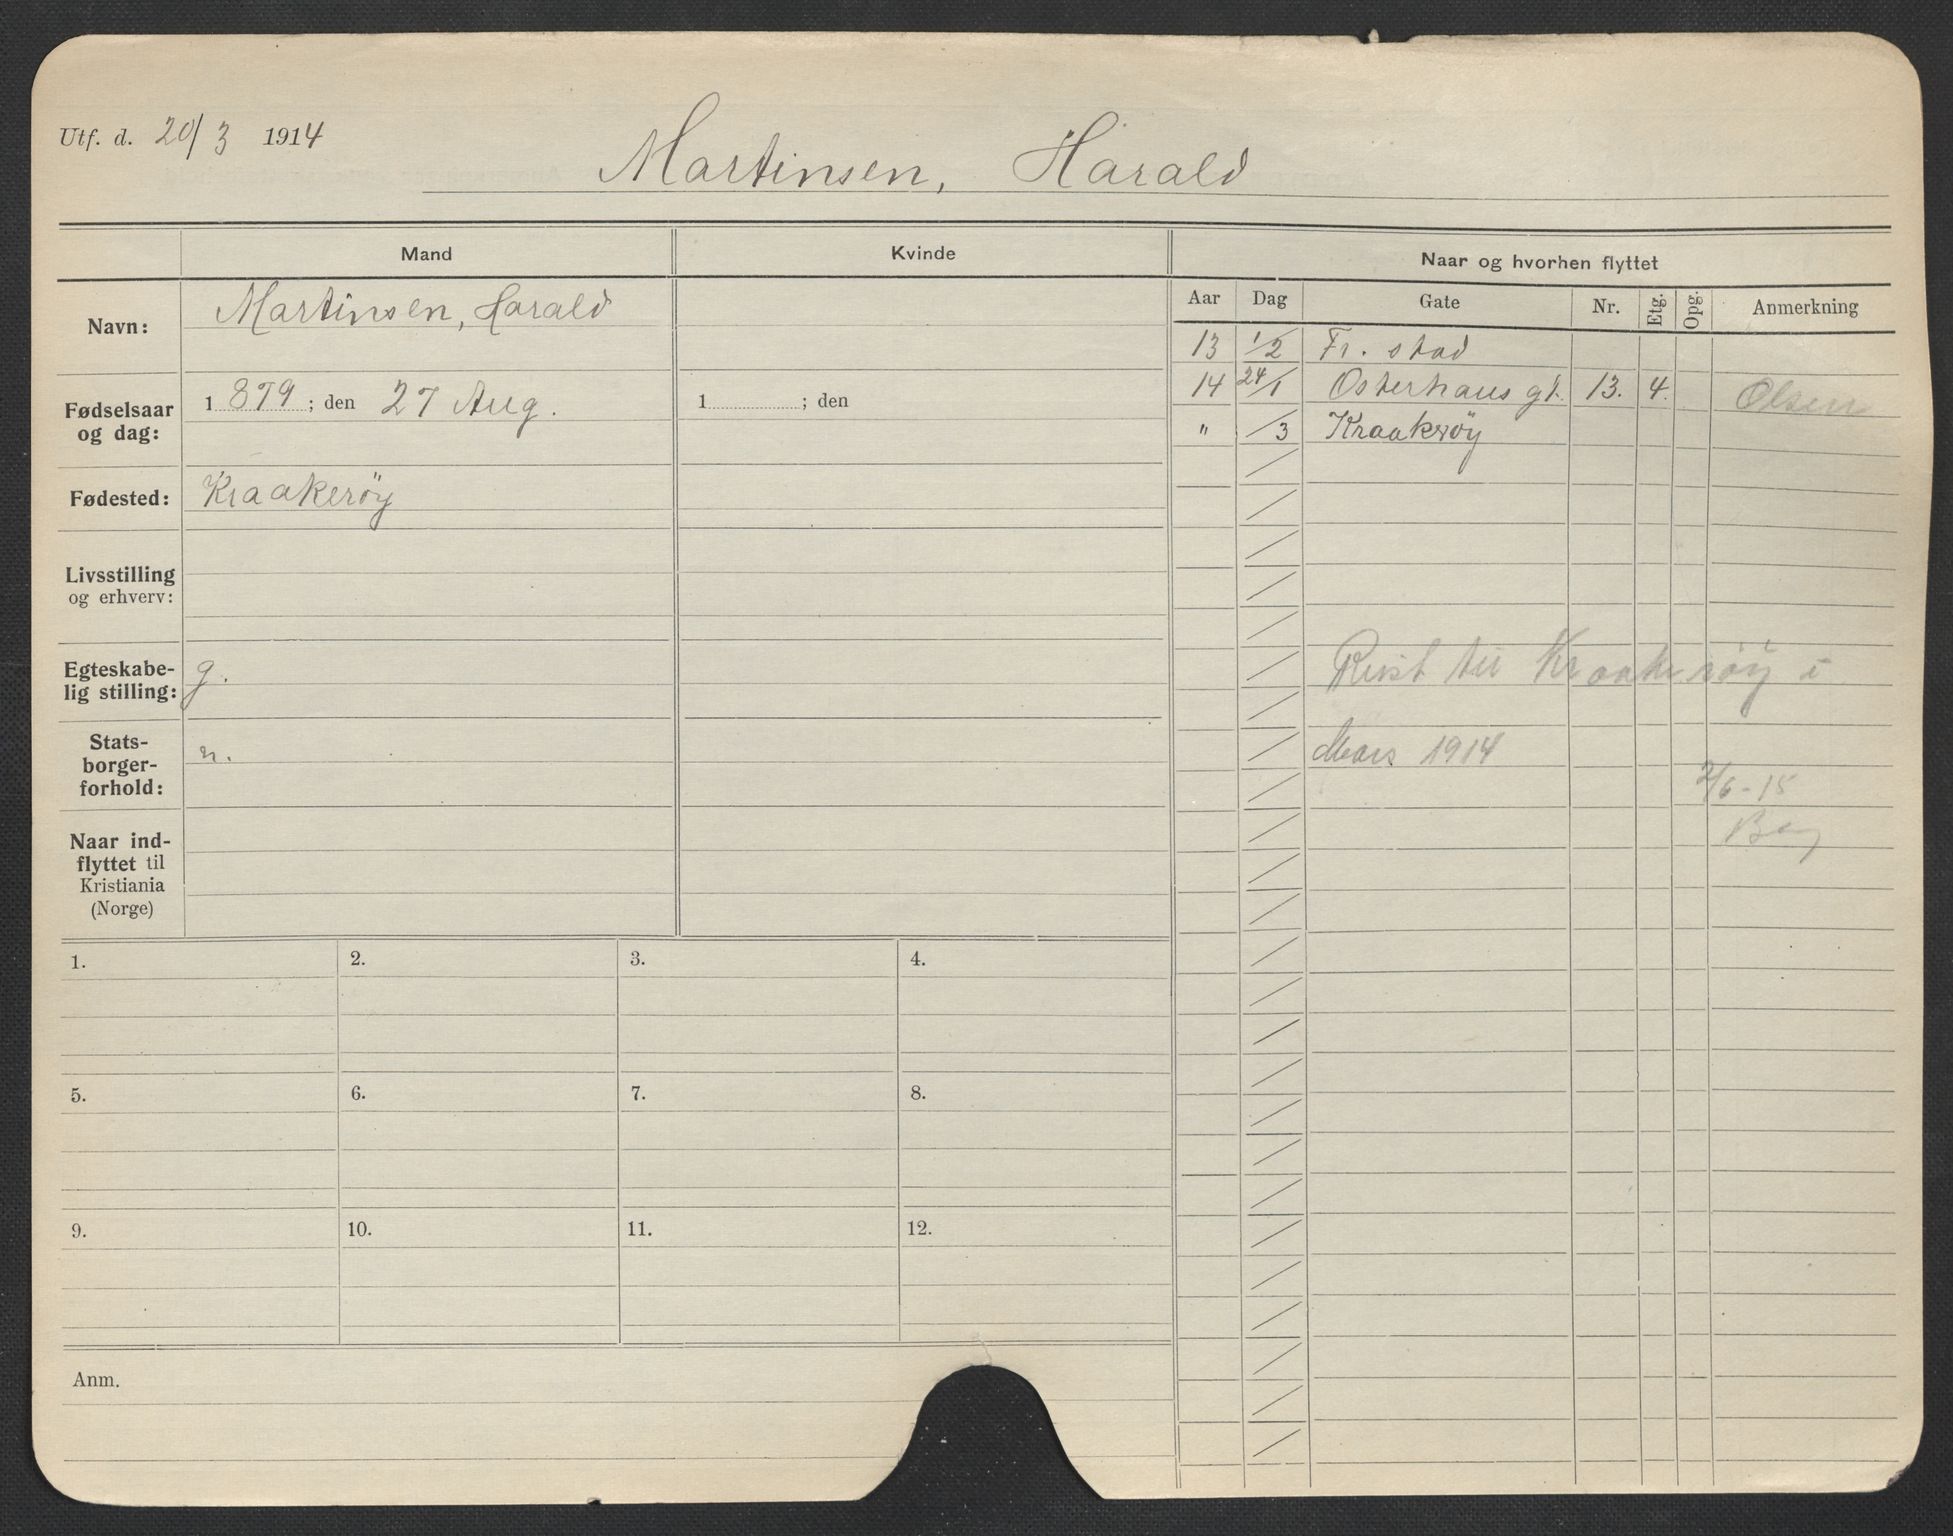 Utf. d. 20/3 1914
Martinsen, Harald
Mand
Kvinde
Naar og hvorhen flyttet
Aar Dag Gate Nr. Etg. Opg. Anmerkning
Navn: Martinsen, Harald
Fødselsaar og dag: 1 879 ; den 27 Aug. 1 ; den
Fødested: Kraakerøy
Livsstilling
og erhverv:
Egteskabe-
lig stilling: g.
Stats-
borger-
forhold: n.
Naar ind-
flyttet til
Kristiania
(Norge)
13 1/2 Fr. stad
14 24/1 Osterhaus gt. 13. 4. Olsen
" /3 Kraakerøy
Reist til Kraakerøy i
Mars 1914
2/6-15
1. 2. 3. 4.
5. 6. 7. 8.
9. 10. 11. 12.
Anm.